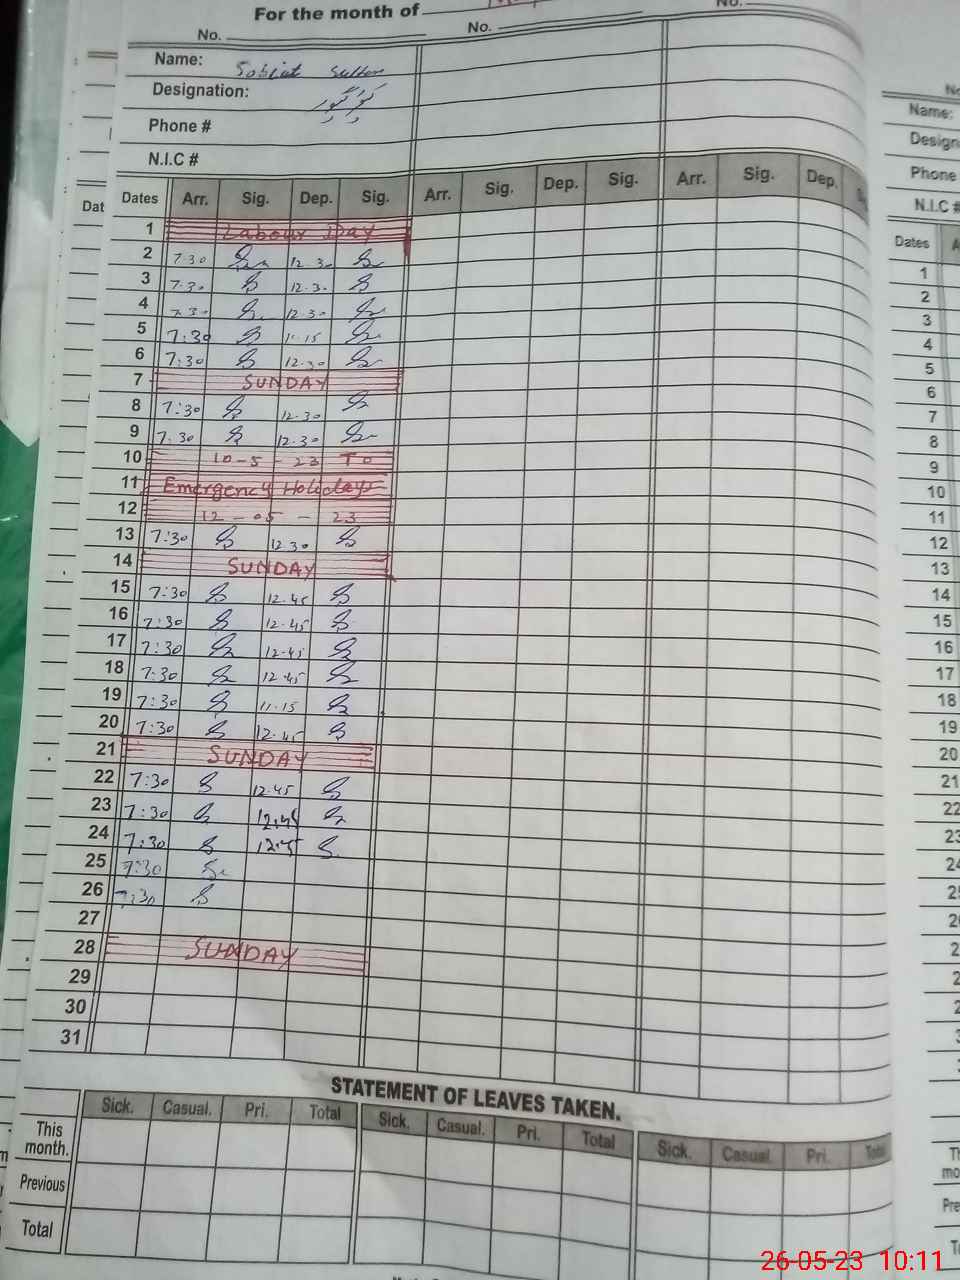 For the month of
No.
No.
No.
Name:
Designation:
Phone #
N.I.C #
Dates Arr. Sig. Dep. Sig. Arr. Sig. Dep. Sig. Arr. Sig. Dep.
1 Labour Day
2 7.30 12.30
3 7.30 12.30
4 7.30 12.30
5 7:30 11.15
6 7:30 12.30
7 SUNDAY
8 7:30 12.30
9 7.30 12.30
10 10-5-23 To
11 Emergency Holidays
12 12-05-23
13 7:30 12.30
14 SUNDAY
15 7:30 12.45
16 7:30 12.45
17 7:30 12.45
18 7:30 12.45
19 7:30 11.15
20 7:30 12.45
21 SUNDAY
22 7:30 12.45
23 7:30 12.45
24 7:30 12.45
25 7:30
26 7:30
27
28 SUNDAY
29
30
31
STATEMENT OF LEAVES TAKEN.
Sick. Casual. Pri. Total Sick. Casual. Pri. Total Sick. Casual. Pri. Total
This month.
Previous
Total
Dat
Name:
Phone
N.I.C #
Dates
1
2
3
4
5
6
7
8
9
10
11
12
13
14
15
16
17
18
19
20
21
22
26-05-23 10:11